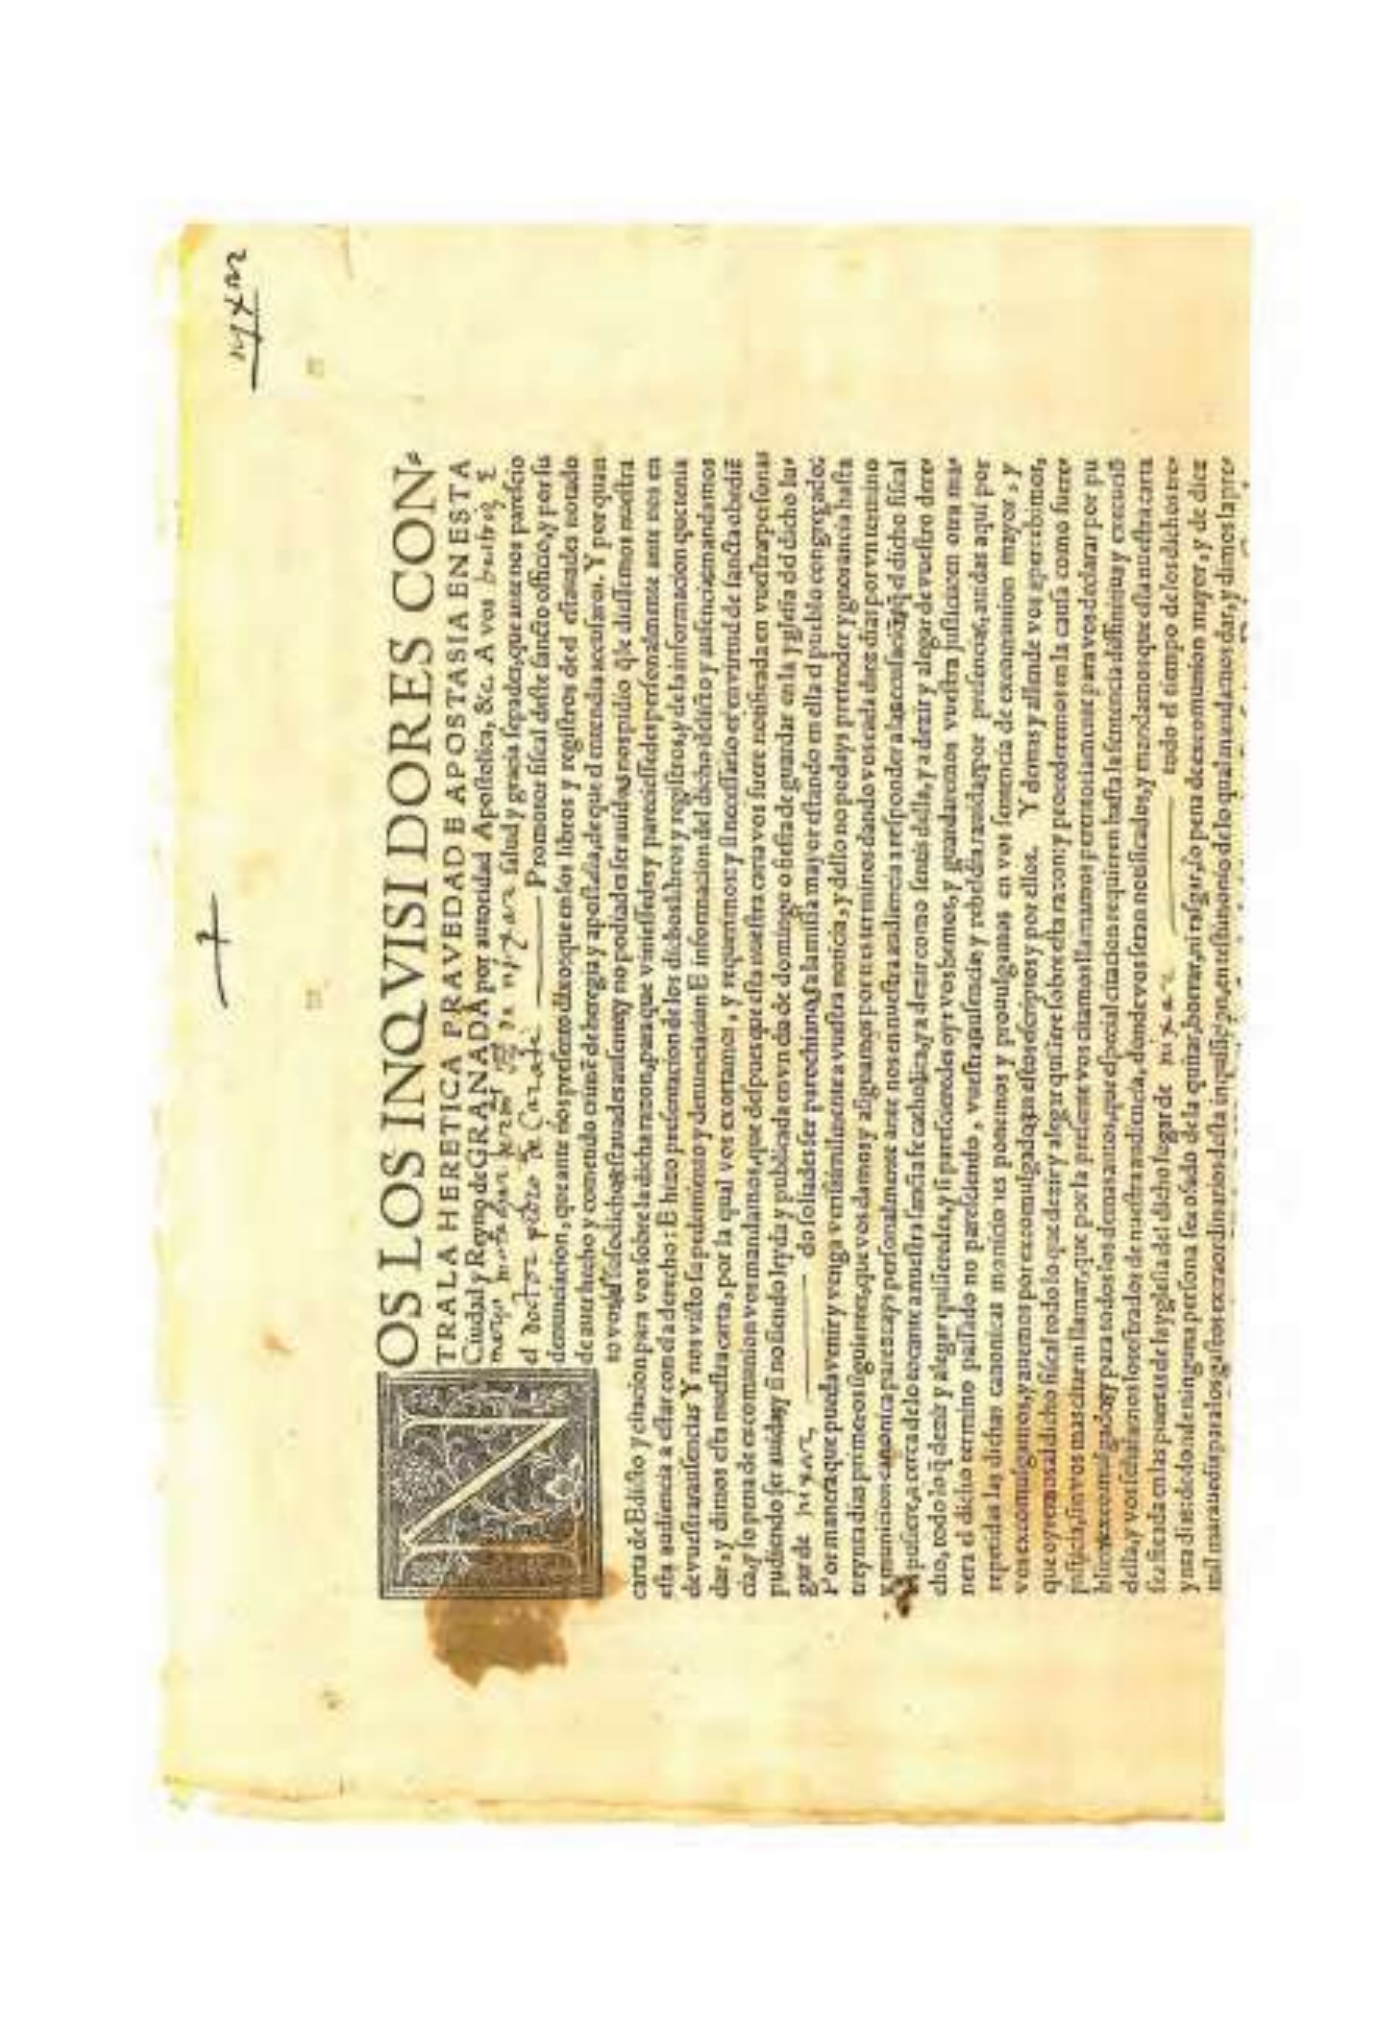 nyxar
NOS LOS INQVISIDORES CON-
TRA LA HERETICA PRAVEDAD E APOSTASIA EN ESTA
Ciudad y Reyno de GRANADA por autoridad Apostolica, &c. A vos
de nyxar salud y gracia sepades, que ante nos parescio
el doctor de Promotor fiscal deste sancto officio, y por su
denunciacion, que ante nos presento dixo que en los libros y registros de el estauades notado
de auer hecho y cometido crimẽ de heregia y apostasia, de que el entendia accusaros. Y por quan
to vos susodicho estauades ausente, y no podiades ser auida, nos pidio q̃ le diessemos nuestra
carta de Edicto y citacion para vos sobre la dicha razon, para que viniessedes y pareciessedes personalmente ante nos en
esta audiencia a estar con el a derecho: E hizo presentacion de los dichos libros y registros, y de la informacion que tenia
de vuestra ausencia: Y nos visto su pedimiento y denunciacion E informacion del dicho delicto y ausencia, mandamos
dar, y dimos esta nuestra carta, por la qual vos exortamos, y requerimos: y si necessario es en virtud de sancta obediẽ
cia, y so pena de excomunion vos mandamos, que despues que esta nuestra carta vos fuere notificada en vuestra personas
pudiendo ser auida, y si no siendo leyda y publicada en vn dia de domingo o fiesta de guardar en la yglesia del dicho lu-
gar de nyxar do soliades ser parochiano, a la missa mayor estando en ella el pueblo congregado:
Por manera que pueda venir y venga verisimilmente a vuestra noticia, y dello no podays pretender ygnorancia hasta
treynta dias primeros siguientes, que vos damos y asignamos por tres terminos dando vos cada diez dias por vn termino
y municion canonica parezcays personalmente ante nos en nuestra audiencia a responder a la accusaciõ q̃ el dicho fiscal
pusiere, a cerca de lo tocante a nuestra sancta fe catholica, y a dezir como sentis della, y a dezir y alegar de vuestro dere-
cho, todo lo q̃ dezir y alegar quisieredes, y si parescieredes oyr vos hemos, y guardaremos vuestra justicia: en otra ma-
nera el dicho termino passado no paresciendo, vuestra ausencia y rebeldia auida por presencia, auidas aqui por
repetidas las dichas canonicas monicio nes ponemos y promulgamos en vos sentencia de excomunion mayor, y
vos excomulgamos, y auemos por excomulgado en estos escriptos y por ellos. Y demas y allende vos apercibimos,
que oyremos al dicho fiscal todo lo que dezir y alegar quisiere sobre esta razon: y procederemos en la causa como fuere
justicia, sin vos mas citar ni llamar, que por la presente vos citamos llamamos perentoriamente para vos declarar por pu
blico excomulgado, y para todos los demas autos, que especial citacion requieren hasta la sentencia diffinitiua y execuciõ
della, y vos señalamos los estrados de nuestra audiencia, donde vos seran notificados, y mandamos que esta nuestra carta
sea fixada en las puertas de la yglesia del dicho lugar de nixar todo el tiempo de los dichos tre-
ynta dias: de donde ninguna persona sea osado de la quitar, borrar, ni rasgar, so pena de excomunion mayor, y de diez
mil marauedis para los gastos extraordinarios desta inquisicion, en testimonio de lo qual mandamos dar, y dimos la pre-